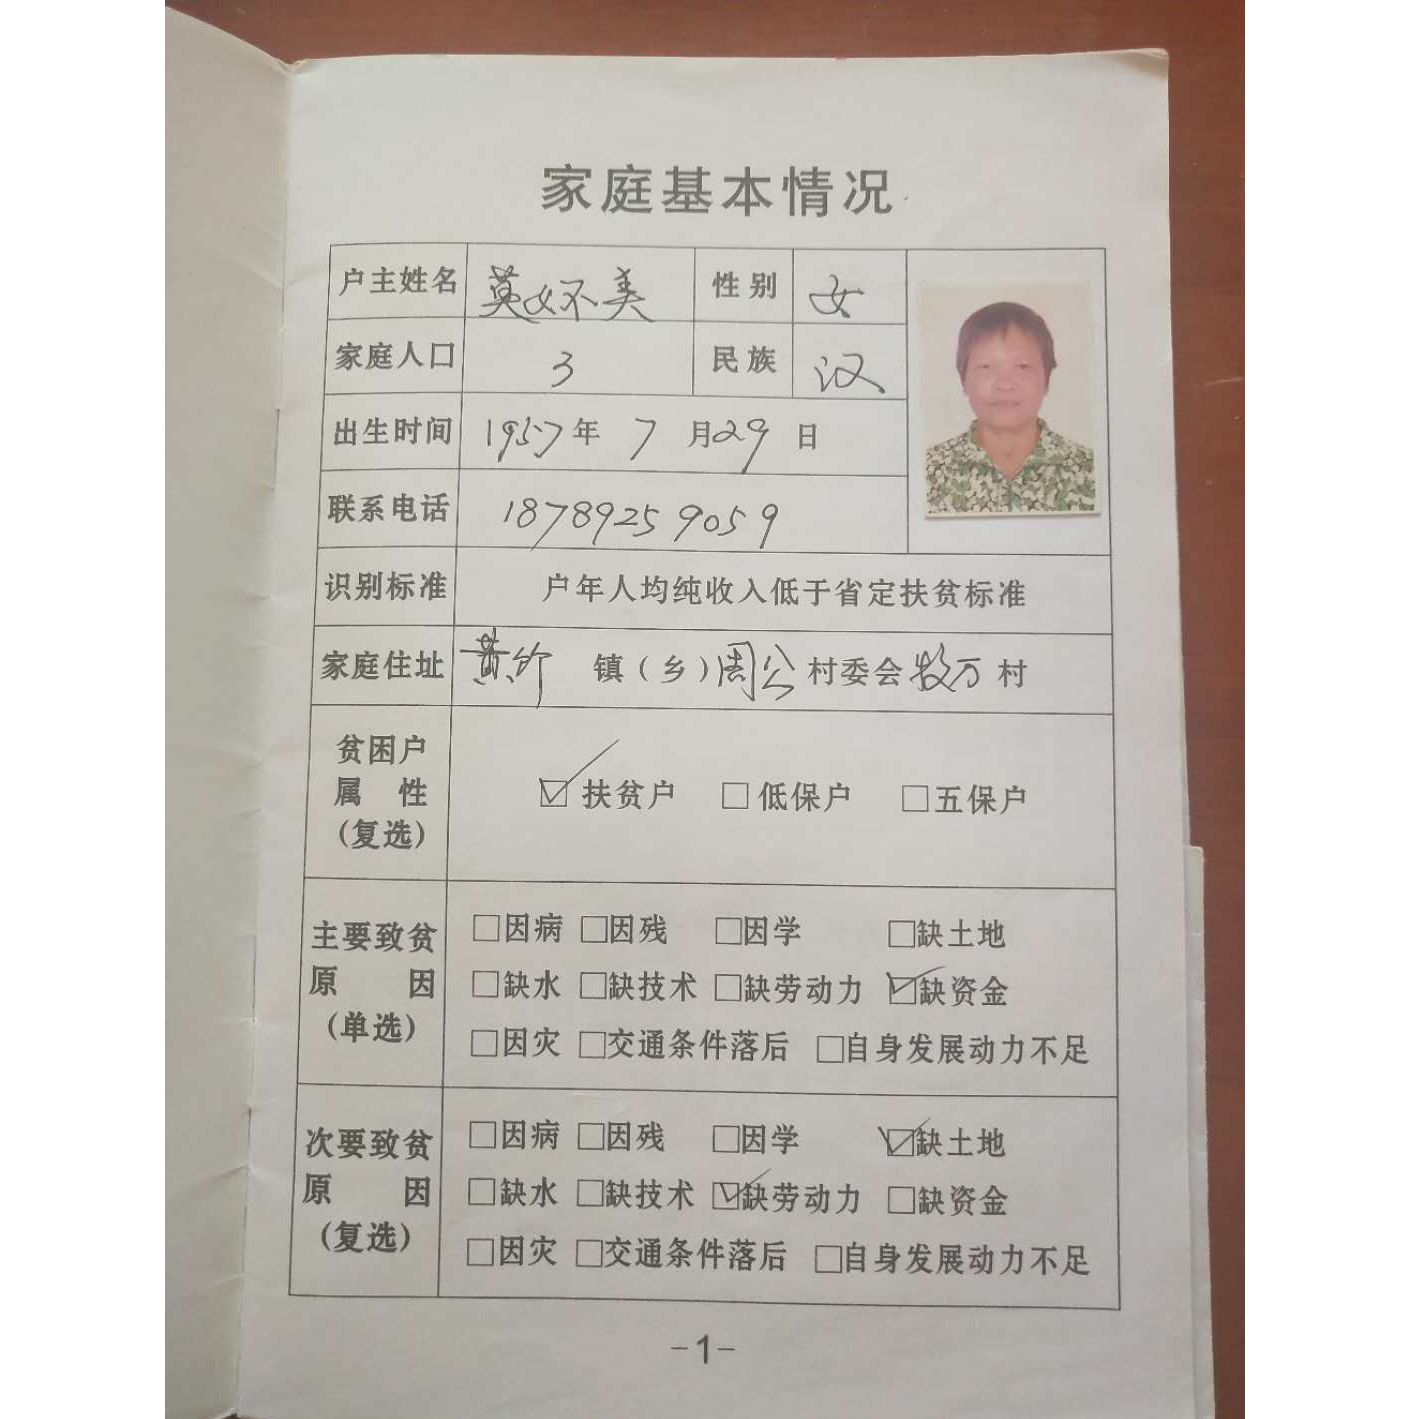 家庭基本情况
户主姓名 英女不美 性别 女
家庭人口 3 民族 汉
出生时间 1957年 7 月29 日
联系电话 18789259059
识别标准 户年人均纯收入低于省定扶贫标准
家庭住址 黄竹 镇（乡）周公 村委会 牧万 村
贫困户
属 性
(复选)
☑扶贫户 □低保户 □五保户
主要致贫
原 因
(单选)
□因病 □因残 □因学 □缺土地
□缺水 □缺技术 □缺劳动力 ☑缺资金
□因灾 □交通条件落后 □自身发展动力不足
次要致贫
原 因
(复选)
□因病 □因残 □因学 ☑缺土地
□缺水 □缺技术 ☑缺劳动力 □缺资金
□因灾 □交通条件落后 □自身发展动力不足
-1-